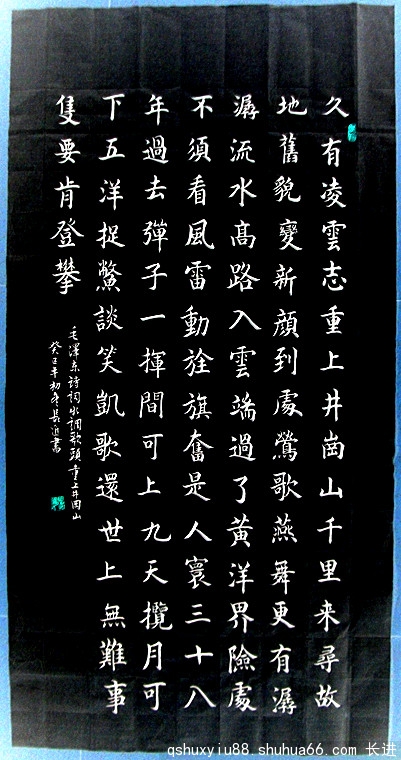 久有凌雲志重上井崗山千里来尋故
地舊貌變新顔到處鶯歌燕舞更有潺
潺流水髙路入雲端過了黃洋界險處
不須看風雷動旌旗奮是人寰三十八
年過去彈子一揮間可上九天攬月可
下五洋捉鱉談笑凱歌還世上無難事
隻要肯登攀
毛澤东詩詞水調歌頭重上井岡山
癸巳年初冬長進書
qshuxyiu88.shuhua66.com 长进